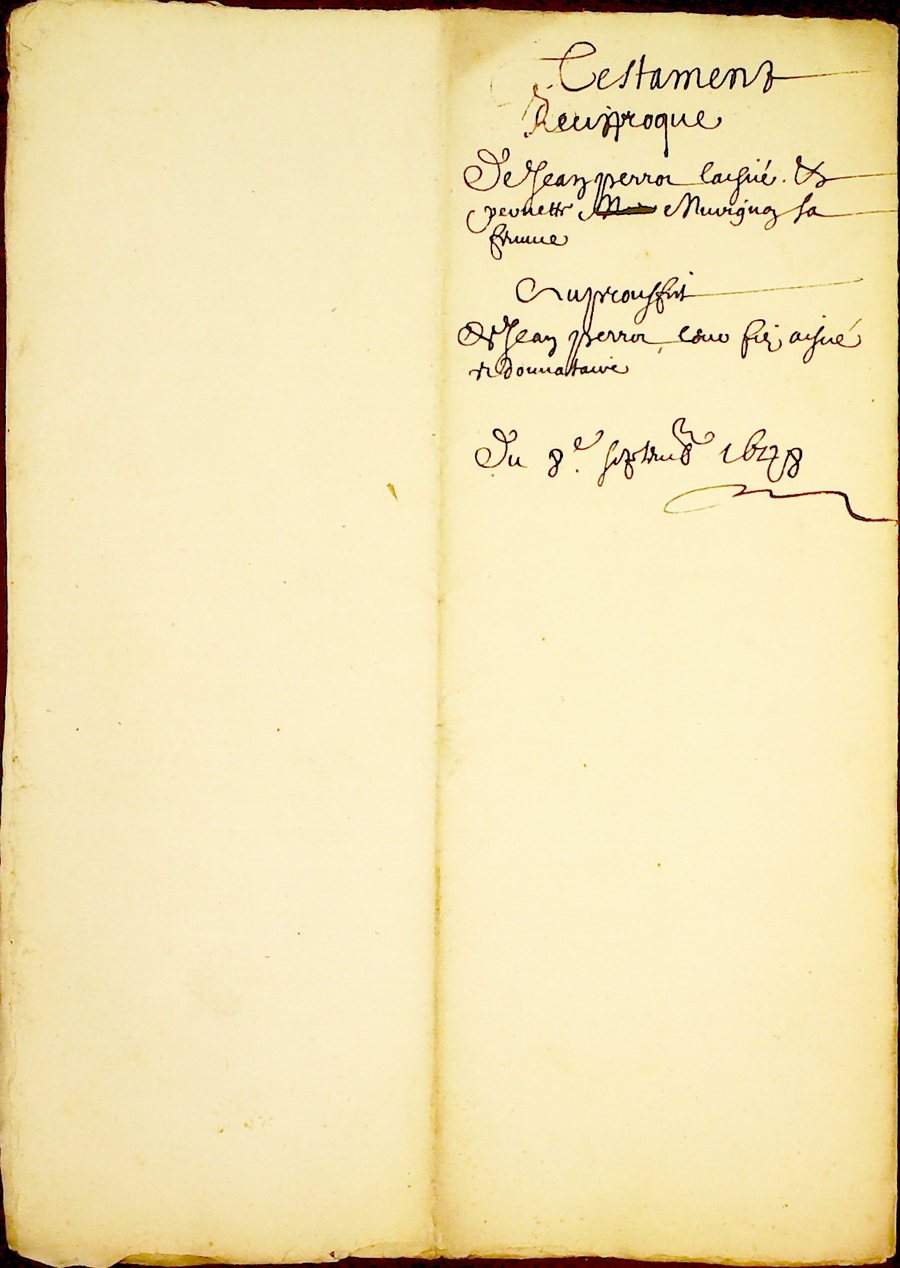 Testament
Reciproque
De Jean perrot laisné &
pernette Muvignon sa
femme
Au prouffit
de Jean perrot leur filz aisné
et donnataire
Du 8e septemb 1678